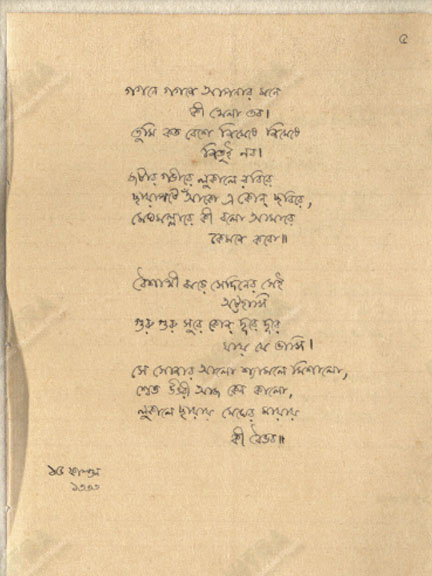 ৫
গগনে গগনে আপনার মনে
কী খেলা তব।
তুমি কত বেশে নিমেষে নিমেষে
নিতুই নব।
জটার গভীরে লুকালে রবিরে
ছায়াপটে আঁকো এ কোন্ ছবিরে,
মেঘমল্লারে কী বলো আমারে
কেমনে কবো॥
বৈশাখী ঝড়ে সেদিনের সেই
অট্টহাসি
গুরু গুরু সুরে কোন্ দূরে দূরে
যায় যে ভাসি।
সে সোনার আলো শ্যামলে মিশালো,
শ্বেত উত্তরী আজ কেন কালো,
লুকালে ছায়ায় মেঘের মায়ায়
কী বৈভব॥
ফাল্গুন